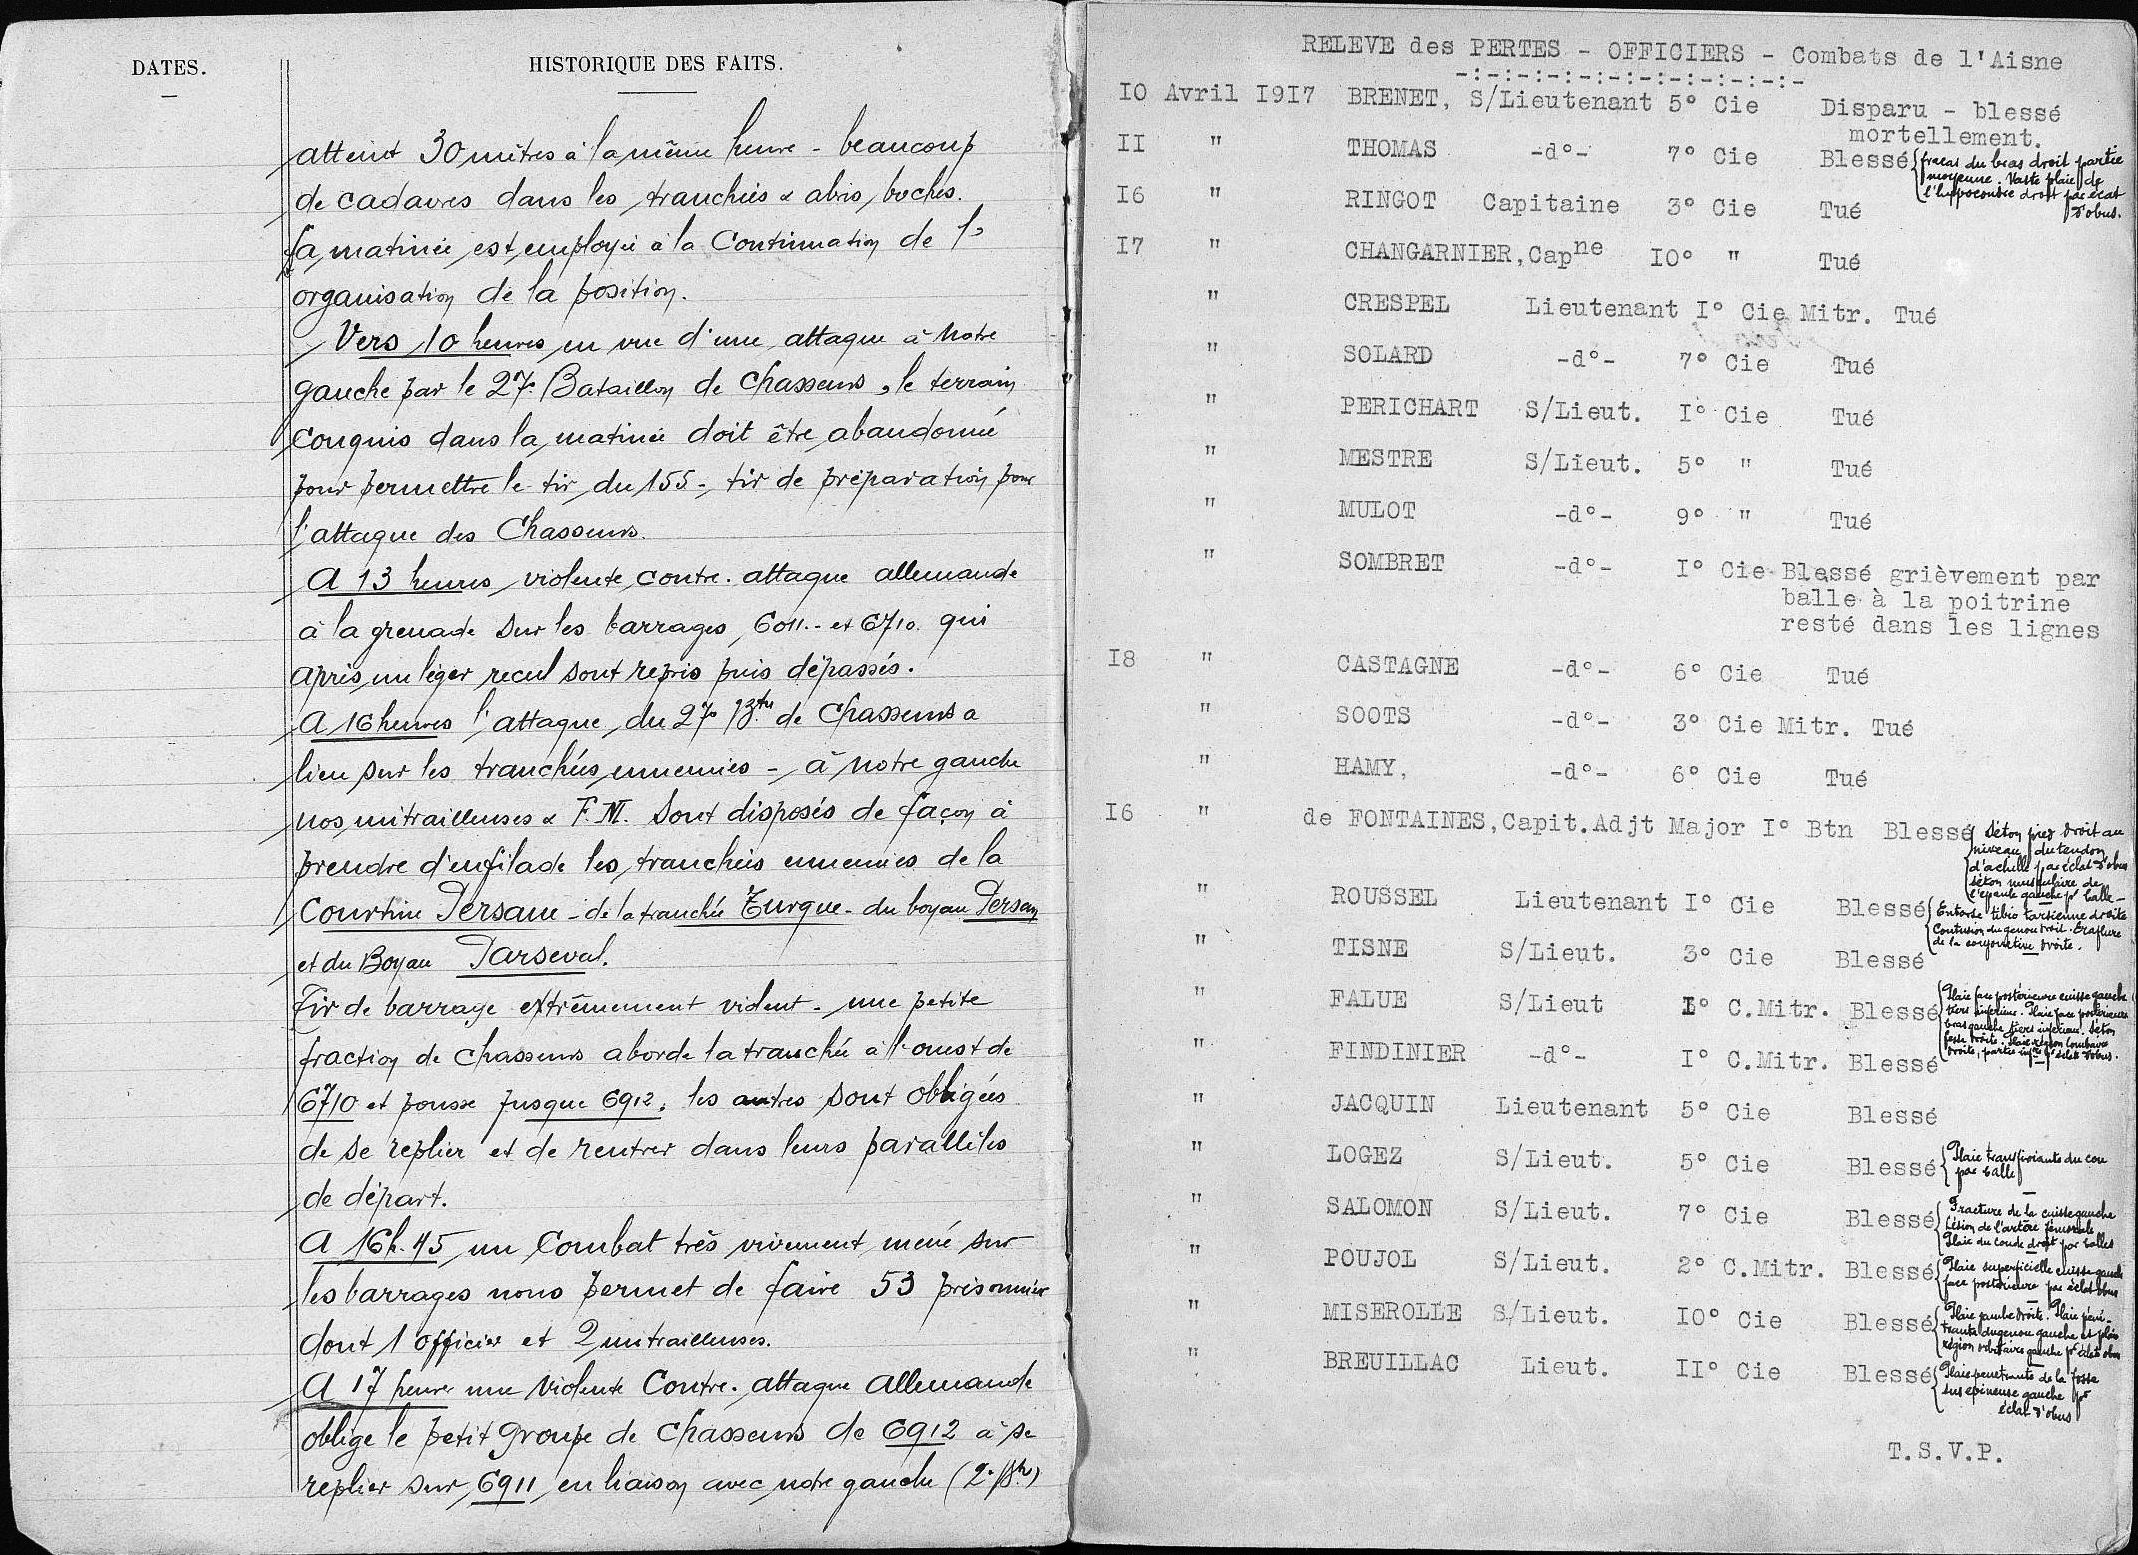 DATES.
HISTORIQUE DES FAITS.
atteint 30 mètres à la même heure - beaucoup
de cadavres dans les tranchées & abris boches.
La matinée est employée à la Continuation de l'
organisation de la position.
Vers 10 heures en vue d'une attaque à Notre
gauche par le 27e Bataillon de Chasseurs, le terrain
Conquis dans la matinée doit être abandonné
pour permettre le tir du 155 - tir de préparation pour
l'attaque des Chasseurs.
A 13 heures violente contre-attaque allemande
à la grenade sur les barrages 6011 - et 6710 qui
après un léger recul sont repris puis dépassés.
A 16 heures l'attaque du 27e Bton de Chasseurs a
lieu sur les tranchées ennemies - à notre gauche
nos mitrailleuses & F.M. sont disposés de façon à
prendre d'enfilade les tranchées ennemies de la
Courtine Persane - de la tranchée Turque - du boyau Persan
et du Boyau Parseval.
Tir de barrage extrêmement violent - une petite
fraction de chasseurs aborde la tranchée à l'ouest de
6710 et pousse jusque 6912, les autres sont obligés
de se replier et de rentrer dans leurs parallèles
de départ.
A 16h.45 un Combat très vivement mené sur
les barrages nous permet de faire 53 prisonniers
dont 1 officier et 2 mitrailleuses.
A 17 heures une violente Contre-attaque allemande
oblige le petit groupe de Chasseurs de 6912 à se
replier sur 6911 en liaison avec notre gauche (2e Bn)
RELEVE des PERTES - OFFICIERS - Combats de l'Aisne
-:-:-:-:-:-:-:-:-:-:-:-
IO Avril I9I7 BRENET, S/Lieutenant 5° Cie Disparu - blessé
mortellement.
II " THOMAS -d°- 7° Cie Blessé { fracas du bras droit partie
moyenne. Vaste plaie de
l'hypocondre droit par éclat
d'obus.
I6 " RINGOT Capitaine 3° Cie Tué
I7 " CHANGARNIER, Capne IO° " Tué
" CRESPEL Lieutenant I° Cie Mitr. Tué
" SOLARD -d°- 7° Cie Tué
" PERICHART S/Lieut. I° Cie Tué
" MESTRE S/Lieut. 5° " Tué
" MULOT -d°- 9° " Tué
" SOMBRET -d°- I° Cie Blessé grièvement par
balle à la poitrine
resté dans les lignes
I8 " CASTAGNE -d°- 6° Cie Tué
" SOOTS -d°- 3° Cie Mitr. Tué
" HAMY, -d°- 6° Cie Tué
I6 " de FONTAINES, Capit. Adjt Major I° Btn Blessé { Séton pied droit au
niveau du tendon
d'achille par éclat d'obus
séton musculaire de
l'épaule gauche pr balle -
" ROUSSEL Lieutenant I° Cie Blessé { Entorse tibio tarsienne droite
Contusion du genou droit. Eraflure
de la conjonctive droite.
" TISNE S/Lieut. 3° Cie Blessé
" FALUE S/Lieut I° C.Mitr. Blessé { Plaie face postérieure cuisse gauche
tiers inférieur. Plaie face postérieure
bras gauche tiers inférieur. Séton
fesse droite. Plaie région lombaire
droite, partie infre pr éclats d'obus.
" FINDINIER -d°- I° C.Mitr. Blessé
" JACQUIN Lieutenant 5° Cie Blessé
" LOGEZ S/Lieut. 5° Cie Blessé { Plaie transfixiante du cou
par balle
" SALOMON S/Lieut. 7° Cie Blessé { Fracture de la cuisse gauche
Lésion de l'artère fémorale
Plaie du coude droit par balles
" POUJOL S/Lieut. 2° C.Mitr. Blessé { Plaie superficielle cuisse gauche
face postérieure par éclat obus
" MISEROLLE S/Lieut. IO° Cie Blessé { Plaie jambe droite. Plaie péné-
trante du genou gauche et plaie
région orbitaire gauche pr éclats obus
" BREUILLAC Lieut. II° Cie Blessé { Plaie penetrante de la fosse
sus epineuse gauche pr
éclat d'obus
T.S.V.P.